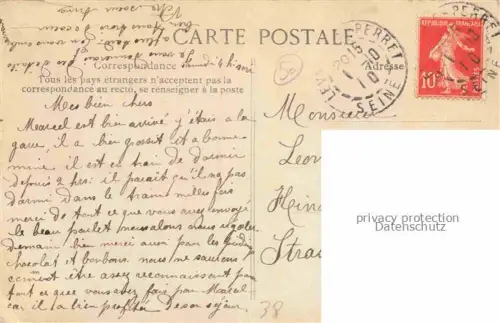 CARTE POSTALE
Correspondance
Adresse
Tous les pays étrangers n'acceptent pas la
correspondance au recto, se renseigner à la poste
Lundi 4 h
Mes bien chers
Marcel est bien arrivé j'étais a la
gare, il a bien grossit et a bonne
mine. il est en train de dormir
depuis 2 hrs: il parait qu'il n'a pas
dormi dans le train. milles fois
merci de tout ce que vous avez envoyé
le beau poulet nous allons nous régaler
Demain bien merci aussi pour les
chocolat et bonbons. nous ne saurons
comment être assez reconnaissant pour
tout ce que vous avez fait par Marcel
car il a bien profité De son séjour.
Monsieur
Leon
Hein
Stra
LEVALLOIS-PERRET
SEINE
RÉPUBLIQUE FRANÇAISE
10
POSTES
38
privacy protection
Datenschutz